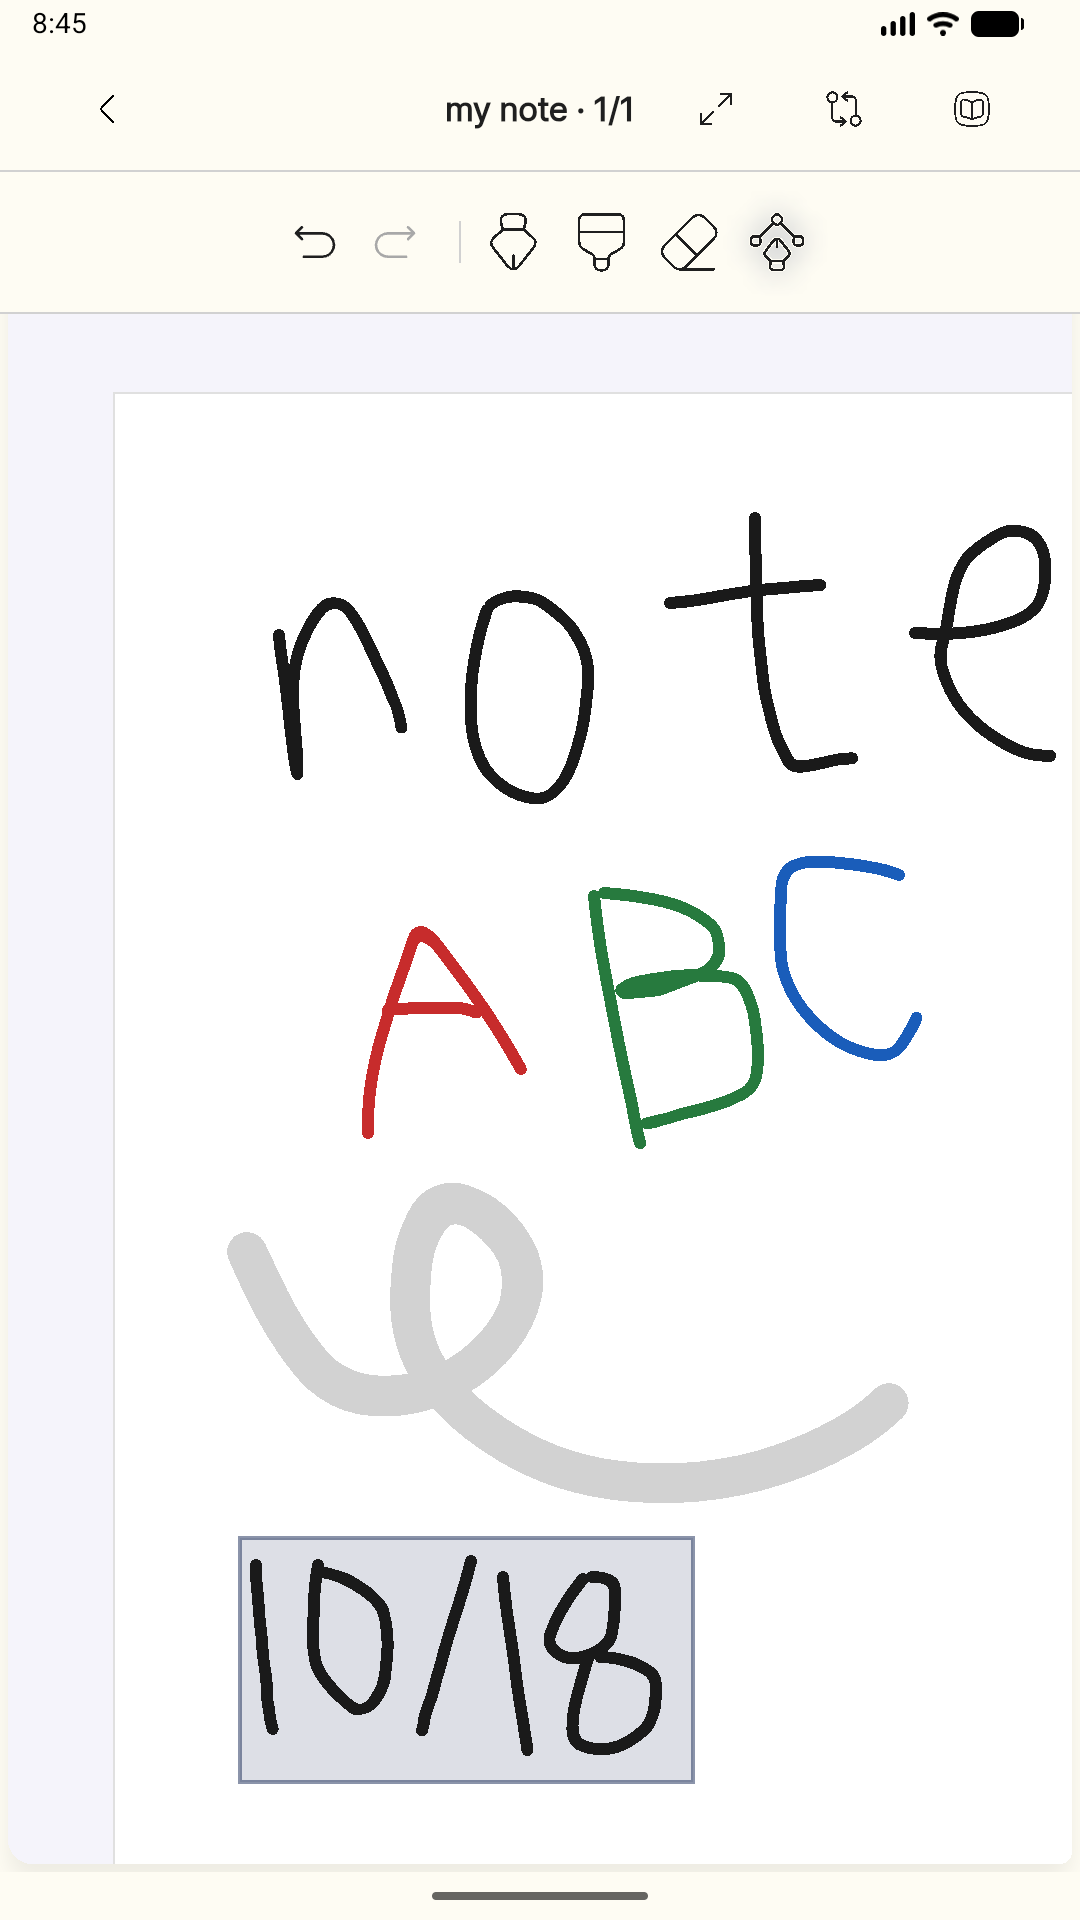 8:45
my note · 1/1
note
ABC
10/18